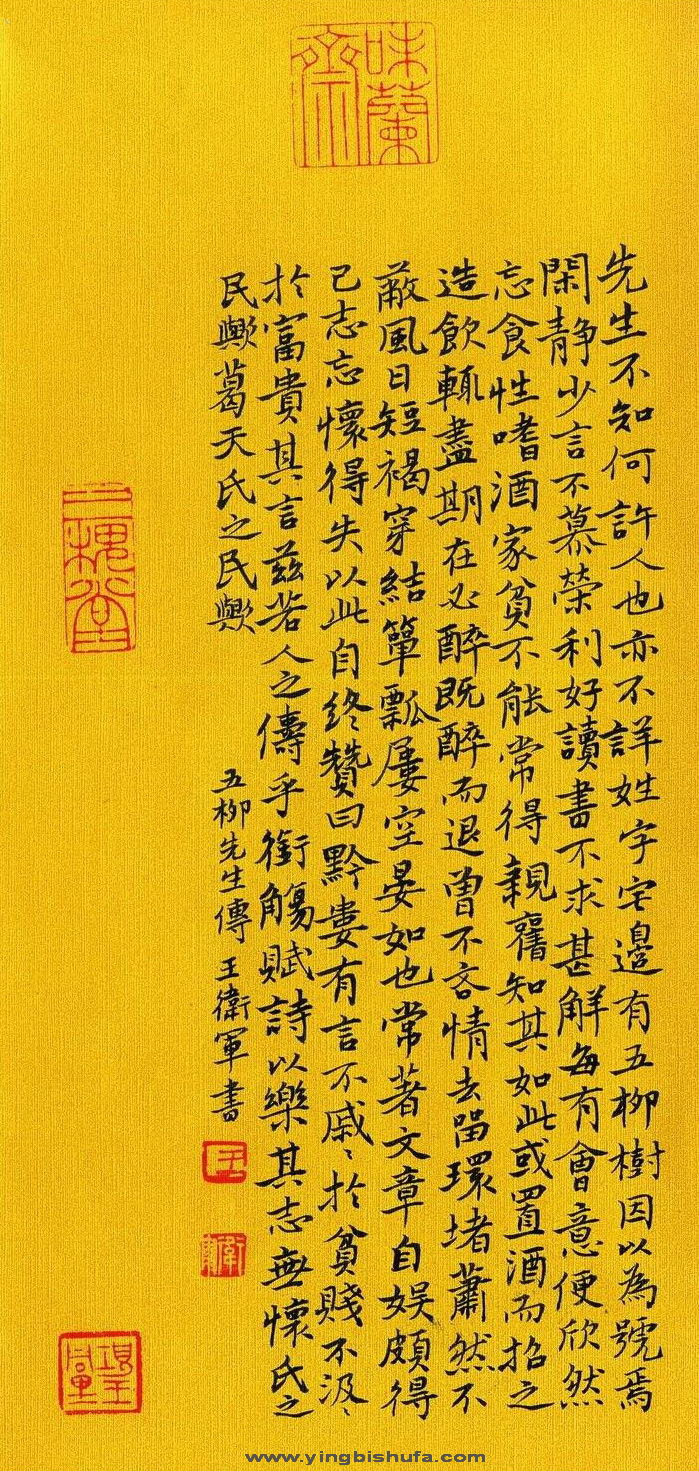 味蘭齋
先生不知何許人也亦不詳姓字宅邊有五柳樹因以為號焉
閑靜少言不慕榮利好讀書不求甚解每有會意便欣然
忘食性嗜酒家貧不能常得親舊知其如此或置酒而招之
造飲輒盡期在必醉既醉而退曾不吝情去留環堵蕭然不
蔽風日短褐穿結簞瓢屢空晏如也常著文章自娛頗得
己志忘懷得失以此自終贊曰黔婁有言不戚〻於貧賤不汲〻
於富貴其言茲若人之儔乎銜觴賦詩以樂其志無懷氏之
民歟葛天氏之民歟
五柳先生傳 王衛軍書
王
衛軍
三槐堂
www.yingbishufa.com